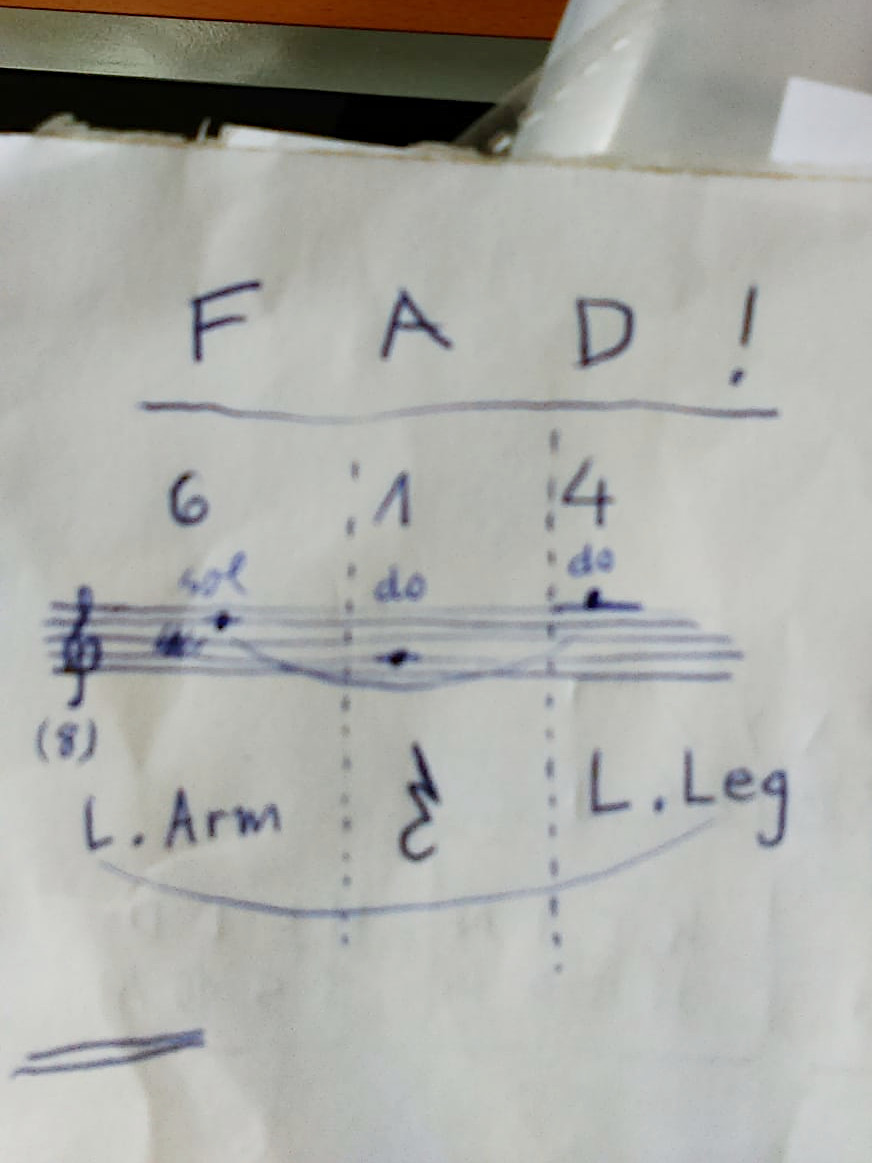 F A D !
6 1 4
sol do do
(8)
L. Arm L. Leg